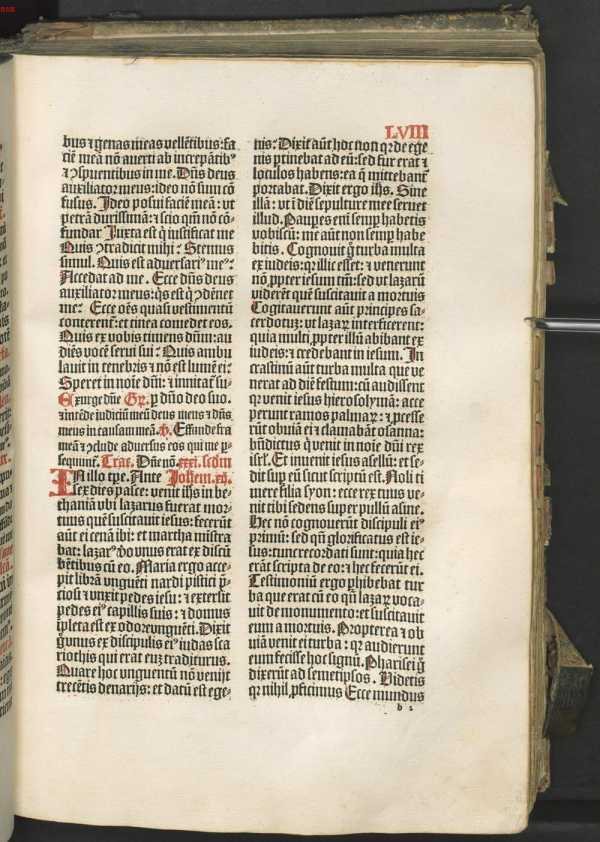 LVIII
bus ⁊ genas meas vellẽtibus: fa
ciẽ meã nõ averti ab increpãtibꝰ
⁊ ↄspuentibus in me. Dñs deus
auxiliator meus: ideo nõ sum cõ
fusus. Ideo posui faciẽ meã: vt
petrã durissimã: ⁊ scio qm̃ nõ cõ⸗
fundar Juxta est q̇ iustificat me
Quis ↄtradicit mihi: Stemus
simul. Quis est adversariꝰ meꝰ:
Accedat ad me. Ecce dñs deus
auxiliator meus: q̇s est q̇ ↄdẽnet
me: Ecce oẽs quasi vestimentũ
conterent̃: et tinea comedet eos.
Quis ex vobis timens dñm: au⸗
diẽs vocẽ servi sui: Quis ambu
lauit in tenebris ⁊ nõ est lumẽ ei:
Speret in noĩe dñi: ⁊ innitat̃ su⸗
Exurge dñe Gꝛ. ꝑ dñõ deo suo.
⁊ intẽde iudiciũ meũ deus meus ⁊ dñs
meus in causam meã. ꝟ. Effunde fra
meã ⁊ ↄclude adversus eos qui me ꝑ⸗
sequunt̃. Trac. Dñe nõ. xxxi. scdm
IN illo tpe. Ante Johem. xij.
sex dies pasce: venit ihs in be⸗
thaniã vbi lazarus fuerat mor⸗
tuus quẽ suscitauit iesus: fecerũt
aũt ei cenã ibi: et martha mĩstra
bat: lazarꝰ ꝟo vnus erat ex discũ
bẽtibus cũ eo. Maria ergo acce⸗
pit librã vnguẽti nardi pistici p̃⸗
ciosi ⁊ vnxit pedes iesu: ⁊ extersit
pedes eiꝰ capillis suis: ⁊ domus
ĩpleta est ex odore vnguẽti. Dixit
g̊ vnus ex discipulis eiꝰ iudas sca
riothis qui erat eũ traditurus.
Quare hoc vnguentũ nõ venijt
trecẽtis denarijs: et datũ est ege⸗
nis: Dixit aũt hoc non qꝛ de ege
nis ꝑtinebat ad eũ: sed fur erat ⁊
loculos habens: ea q̃ mittebant̃
portabat. Dixit ergo ihs. Sine
illã: vt ĩ diẽ sepulture mee seruet
illud. Pauꝑes eni semꝑ habetis
vobiscũ: me aũt non semꝑ habe
bitis. Cognouit g̊ turba multa
ex iudeis: qꝛ illic esset: ⁊ venerunt
nõ ꝓpter iesum tm̃: sed vt lazarũ
viderẽt quẽ suscitauit a mortuis
Cogitauerunt aũt principes sa⸗
cerdotũ: vt lazaꝝ interficerent:
quia multi ꝓpter illũ abibant ex
iudeis: ⁊ credebant in iesum. In
crastinũ aũt turba multa que ve
nerat ad diẽ festum: cũ audissent
qꝛ venit iesus hierosolymã: acce
perunt ramos palmaꝝ: ⁊ ꝓcesse
rũt obuiã ei ⁊ clamabãt osanna:
bñdictus q̇ venit in noĩe dñi rex
isrl̃. Et inuenit iesus asellũ: et se⸗
dit suꝑ eũ sicut scriptũ est. Noli ti
mere filia syon: ecce rex tuus ve⸗
nit tibi sedens super pullũ asine.
Hec nõ cognouerũt discipuli eiꝰ
pꝛimũ: sed qñ glorificatus est ie⸗
sus: tunc recordati sunt: quia hec
erãt scripta de eo: ⁊ hec fecerũt ei.
Testimoniũ ergo phibebat tur
ba que erat cũ eo qñ lazaꝝ voca⸗
uit de monumento: et suscitauit
eum a mortuis. Propterea ⁊ ob
uiã venit ei turba: qꝛ audierunt
eum fecisse hoc signũ. Pharisei g̊
dixerũt ad semetipsos. Videtis
qꝛ nihil ꝓficimus Ecce mundus
h 2